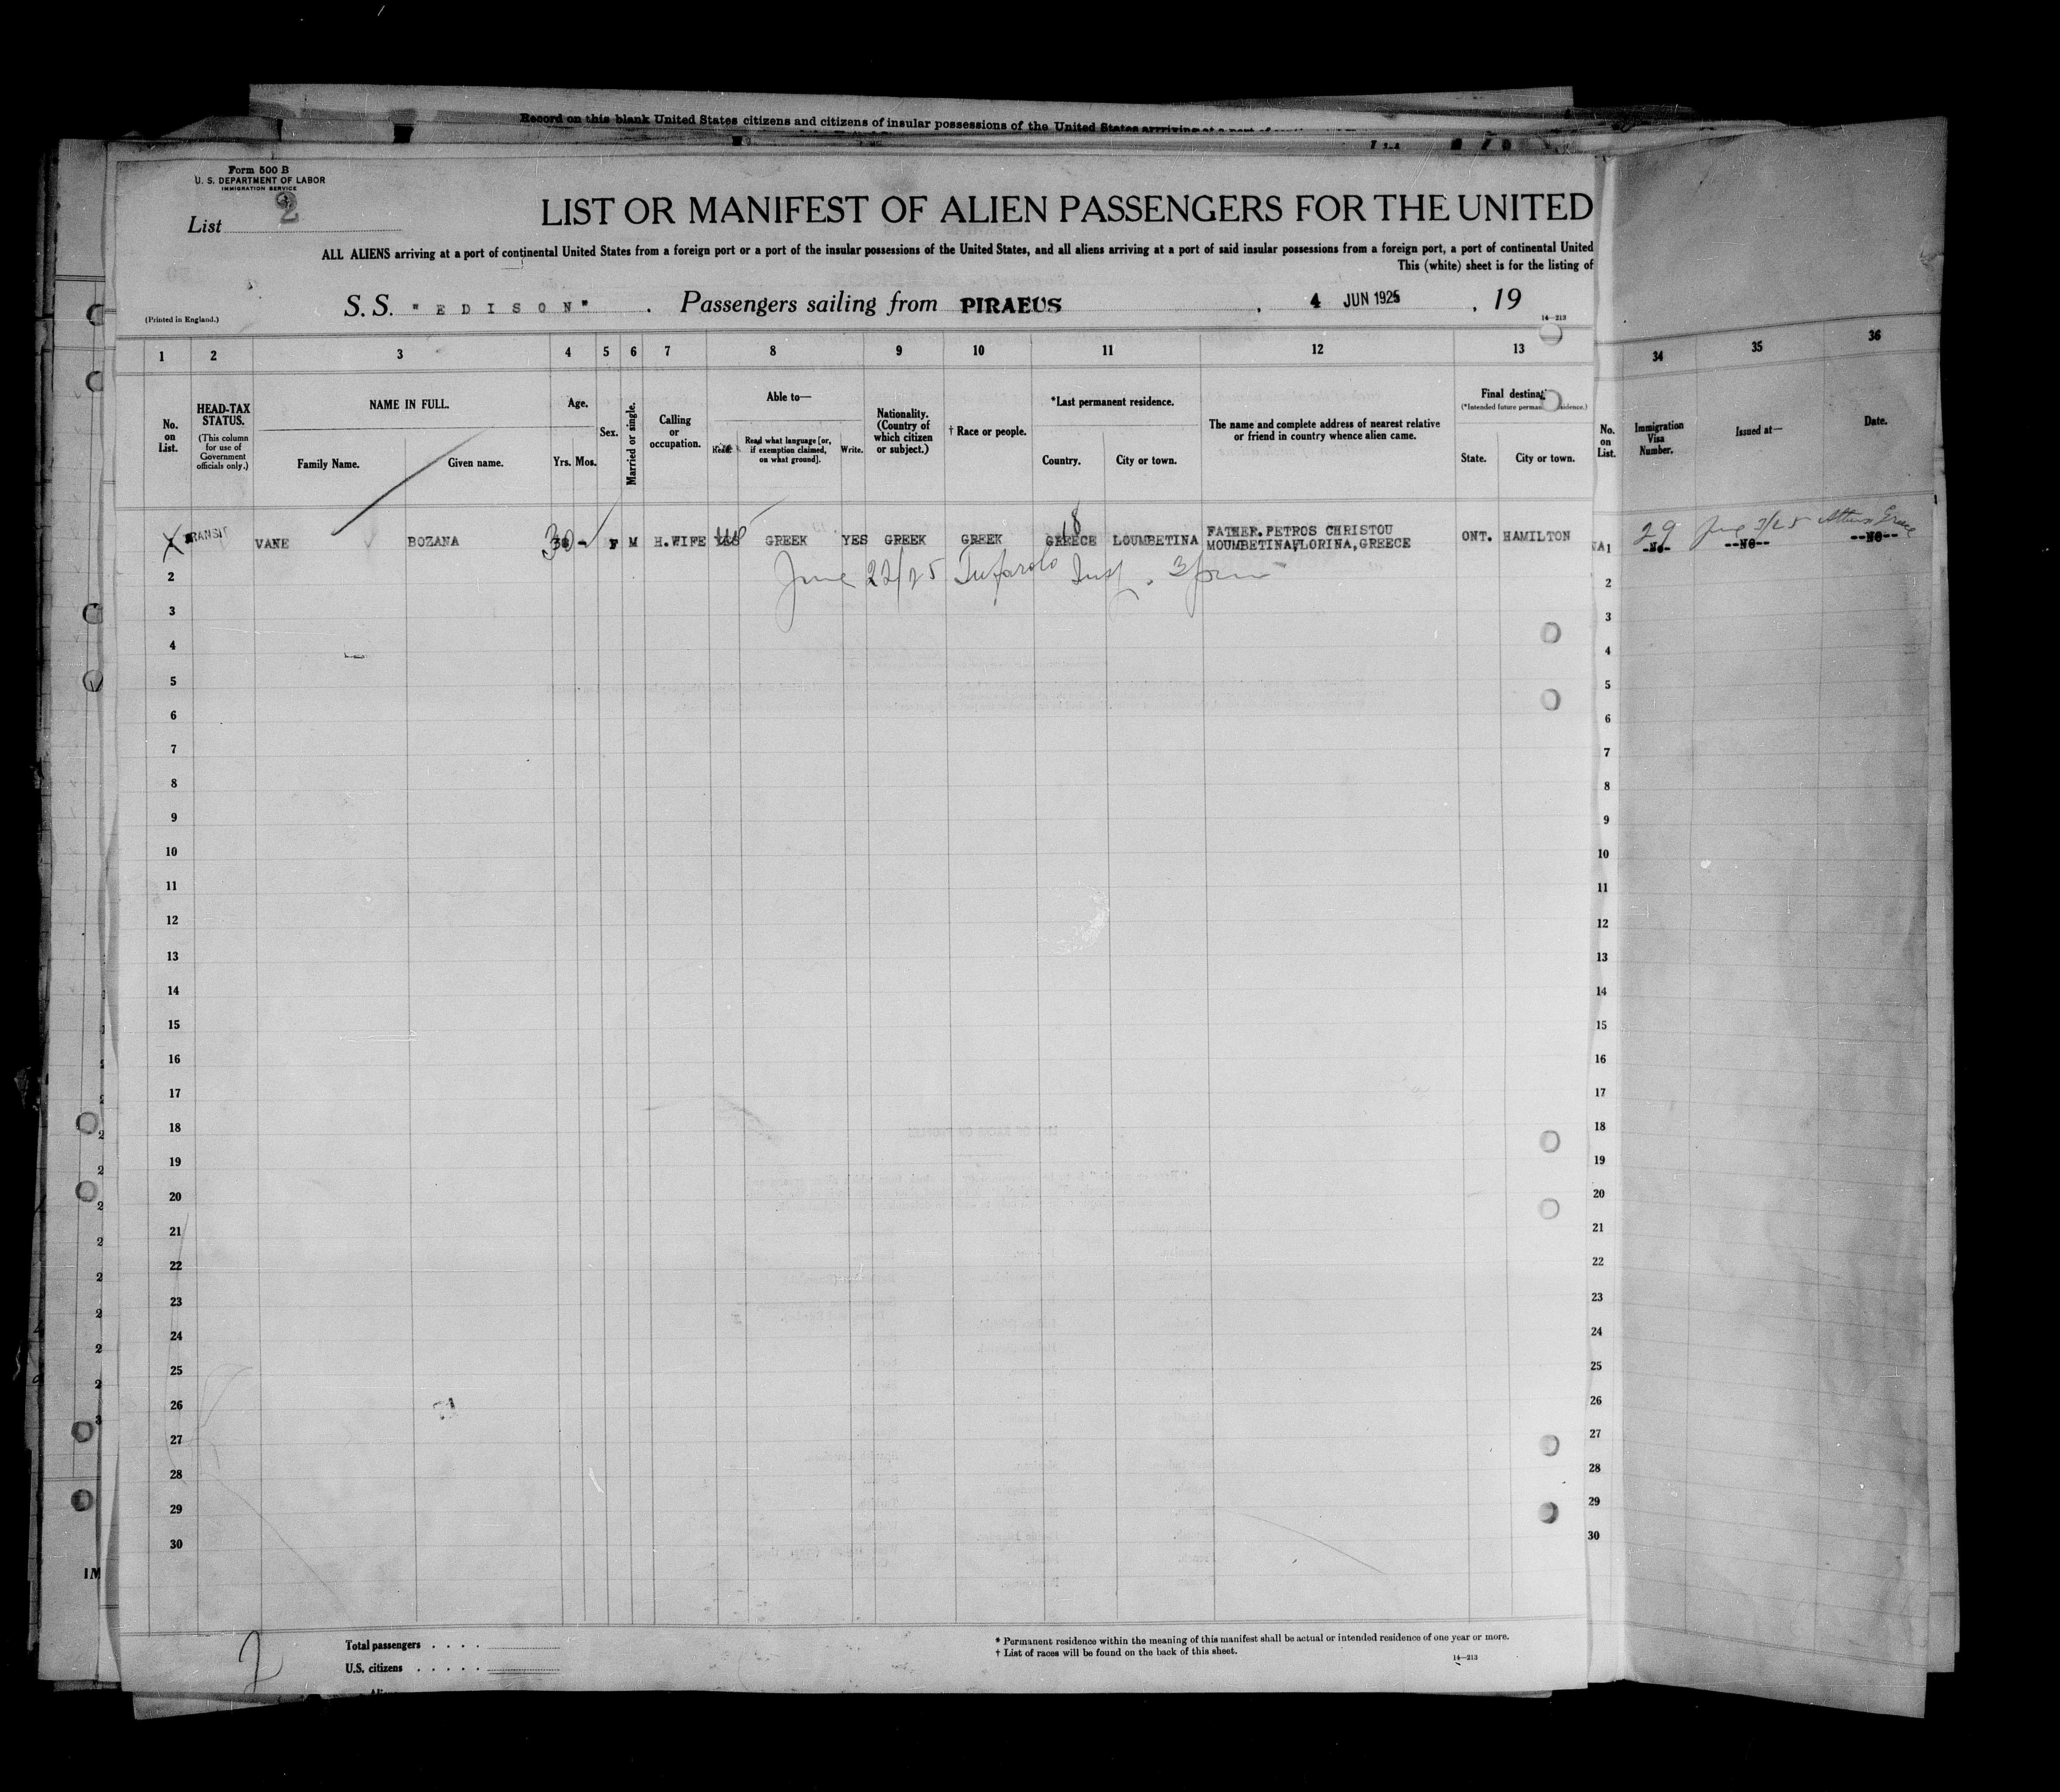 Record on this blank United States citizens and citizens of insular possessions of the United States arriving at a port of
Form 500 B
U. S. DEPARTMENT OF LABOR
IMMIGRATION SERVICE
List 2
LIST OR MANIFEST OF ALIEN PASSENGERS FOR THE UNITED
ALL ALIENS arriving at a port of continental United States from a foreign port or a port of the insular possessions of the United States, and all aliens arriving at a port of said insular possessions from a foreign port, a port of continental United
This (white) sheet is for the listing of
S. S. "EDISON" . Passengers sailing from PIRAEUS , 4 JUN 1925 , 19
(Printed in England.)
14—213
1 2 3 4 5 6 7 8 9 10 11 12 13 34 35 36
No. on List.
HEAD-TAX STATUS.
(This column for use of Government officials only.)
NAME IN FULL.
Family Name. Given name.
Age.
Yrs. Mos.
Sex.
Married or single.
Calling or occupation.
Able to—
Read. Read what language [or, if exemption claimed, on what ground]. Write.
Nationality. (Country of which citizen or subject.)
† Race or people.
*Last permanent residence.
Country. City or town.
The name and complete address of nearest relative or friend in country whence alien came.
Final destinat
(*Intended future perman idence.)
State. City or town.
No. on List.
Immigration Visa Number.
Issued at—
Date.
TRANSIT VANE BOZANA 30 - F M H.WIFE YES GREEK YES GREEK GREEK GREECE LOUMBETINA FATHER.PETROS CHRISTOU ONT. HAMILTON
MOUMBETINA,FLORINA,GREECE
18
1 29 June 3/25 Athens Greece
-NO- --NO-- --NO--
June 22/25 Insp. 3 pm
2 2
3 3
4 4
5 5
6 6
7 7
8 8
9 9
10 10
11 11
12 12
13 13
14 14
15 15
16 16
17 17
18 18
19 19
20 20
21 21
22 22
23 23
24 24
25 25
26 26
27 27
28 28
29 29
30 30
2
Total passengers . . . .
U.S. citizens . . . . .
* Permanent residence within the meaning of this manifest shall be actual or intended residence of one year or more.
† List of races will be found on the back of this sheet.
14—213